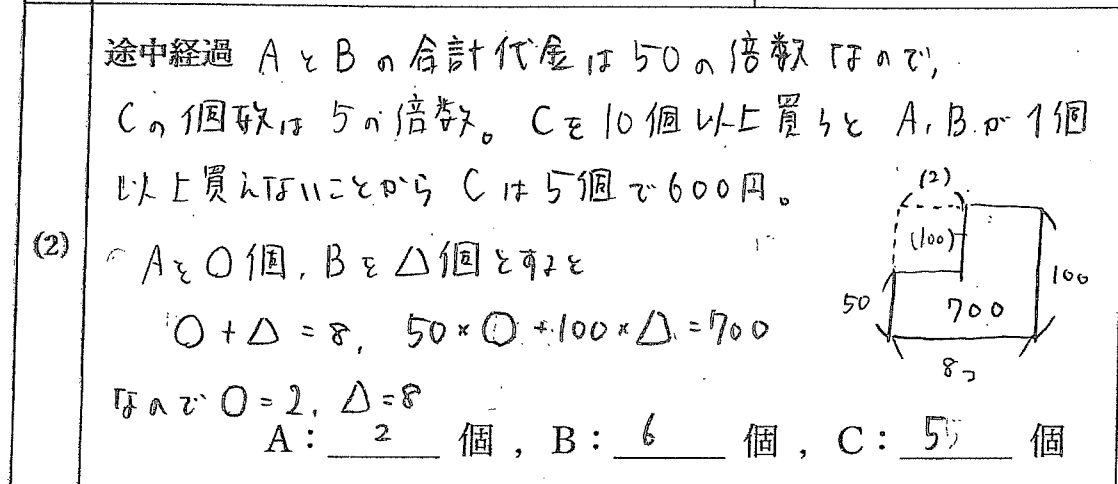 途中経過 AとBの合計代金は50の倍数なので,
Cの個数は5の倍数。Cを10個以上買うと A,Bが1個
以上買えないことから Cは5個で600円。
(2)
Aを○個,Bを△個とすると
○+△=8, 50×○+100×△=700
なので ○=2, △=8
(2)
(100)
50
700
100
8コ
A: 2 個, B: 6 個, C: 5 個